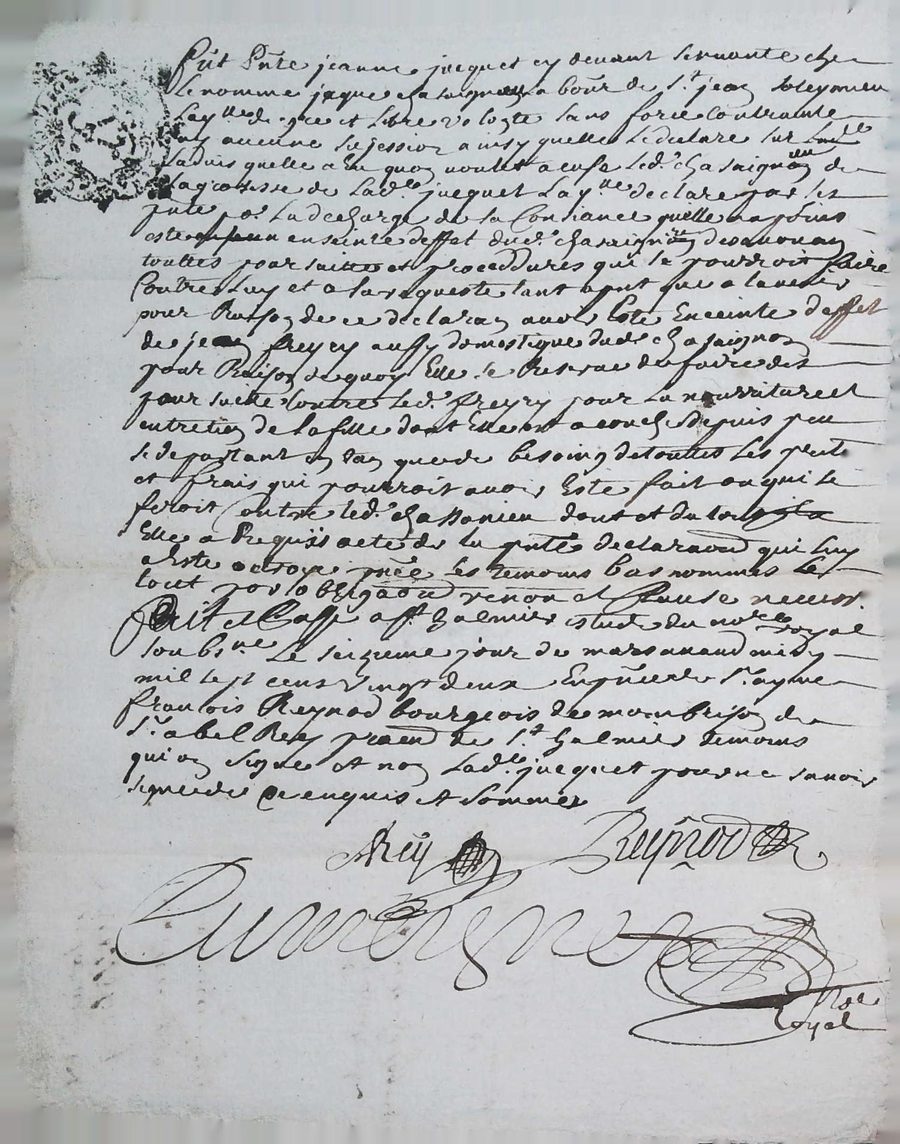 Fut pnte jeanne jacquet cy devant servante che
Le nomme jaque chasaignon a bour de St jean soleymieu
Laqlle de gre et libre volonte sans force contrainte
ny aucune sujession ainsy quelle le declare sur
Ladvis quelle a eu quon vouloit acuse led. chasaignon de
La grossesse de Lad.lle jacquet Laqlle declare par les
pnte pr La decharge de sa Consiance quelle na poins
este enseinte deffet dud. chasaignon desavouan
touttes poursuittes et procedures qui se pourroit faire
Contre Luy et a sa requeste tant apnt que a lavenir
pour Raison de ce declaran avoir Este Enceinte deffet
de jean freyry aussy domestique dud. chasaignon
pour Raison de quoy Elle se Reserve de faire des
poursuitte Contre led. freyry pour La nourriture et
entretien de la fille dont Elle est acouchee depuis peu
se departant en tan que de besoing de touttes Les
et frais qui pourroit avoir Este fait ou qui se
feroit Contre led. chassanieu dont et du tout
Elle a Requis acte de la pnte declaraon qui Luy
a Este octroye pnce Les temoins bas nommes Le
tout par obligaon renon et Clause necess.
Fait et passe a St Galmier estude du no.re royal
soubs.ne Le seizieme jour de mars avand midy
mil sept cens vingt deux En pnce de Sr ayme
francois Reynod bourgeois de monbrison de
Sr abel Rey praen de St Galmier temoins
qui on signe et non Lad.lle jacquet pour ne savoir
signer de ce enquis et sommee
ARey Reynod
Dumoignet
Nore
royal